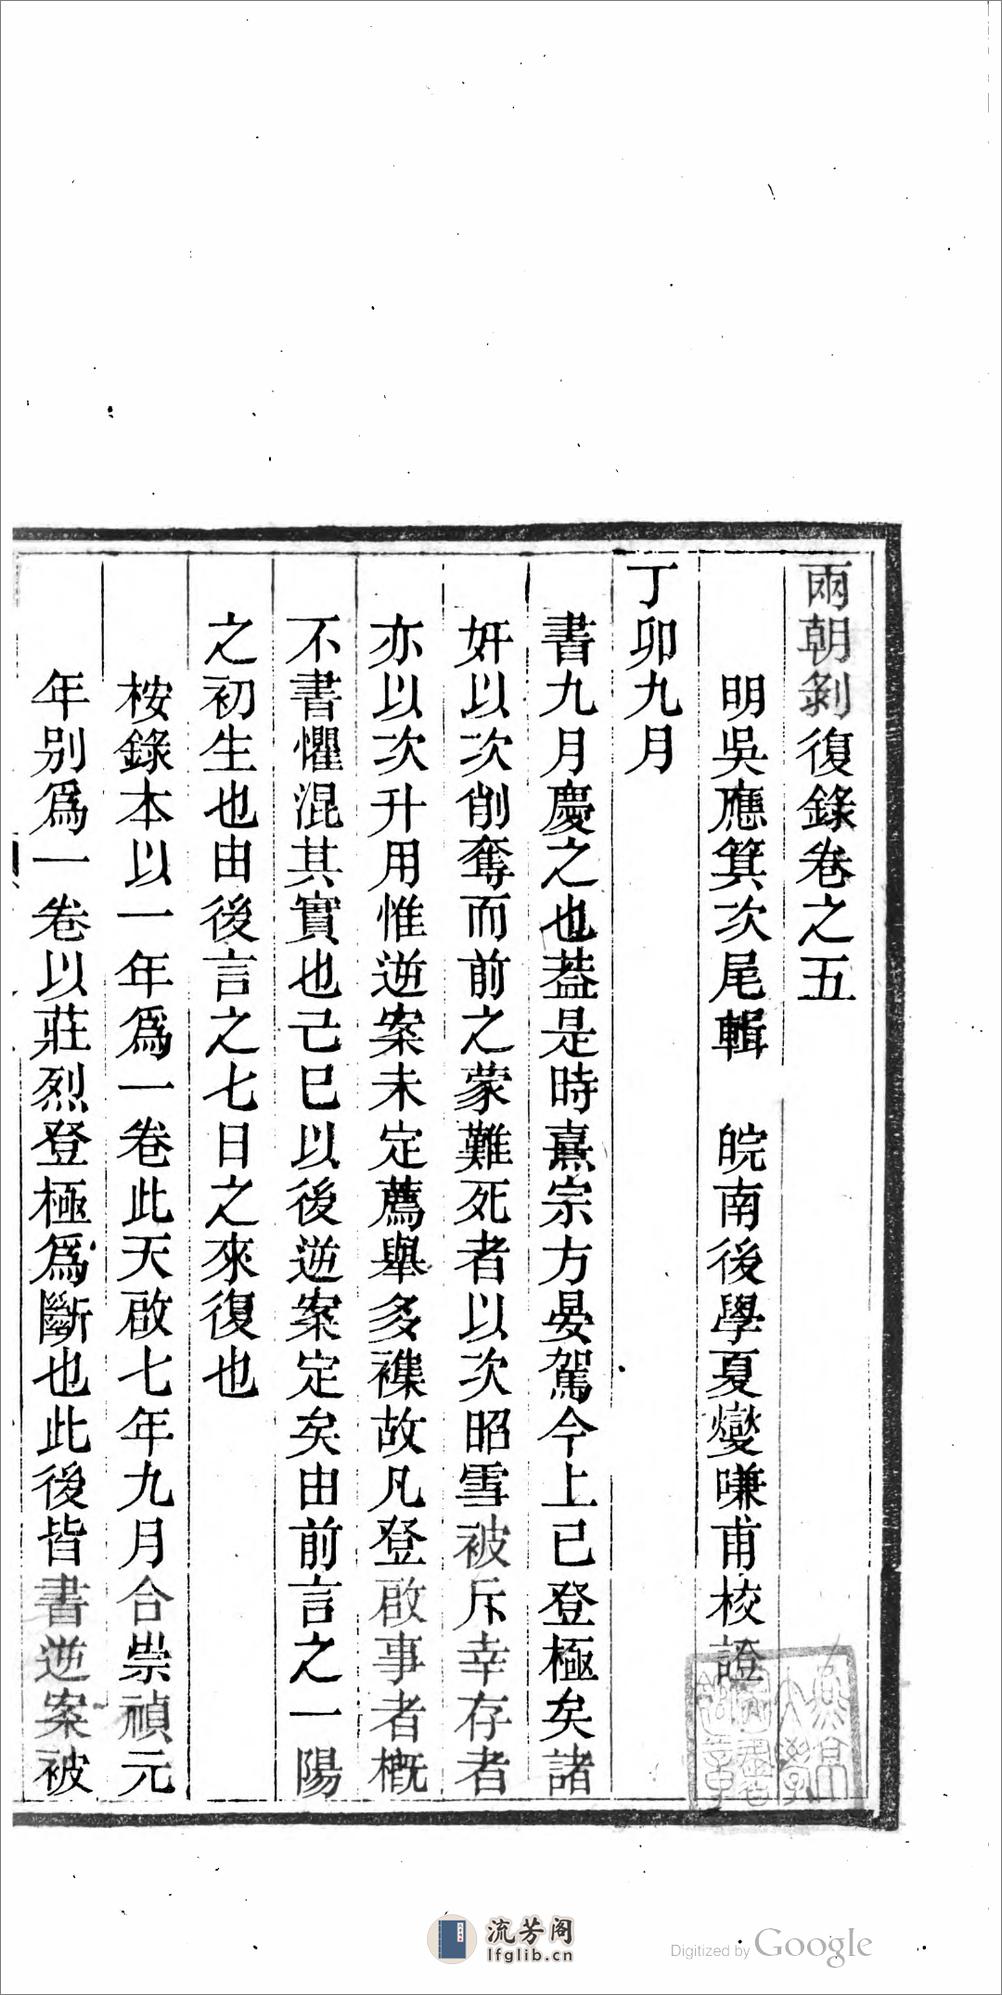 兩朝剝復錄卷之五
明吳應箕次尾輯　皖南後學夏燮嗛甫校證
丁卯九月
書九月慶之也葢是時熹宗方晏駕今上已登極矣諸
奸以次削奪而前之蒙難死者以次昭雪被斥幸存者
亦以次升用惟逆案未定薦舉多襍故凡登啟事者概
不書懼混其實也己巳以後逆案定矣由前言之一陽
之初生也由後言之七日之來復也
桉錄本以一年爲一卷此天啟七年九月合崇禎元
年别爲一卷以莊烈登極爲斷也此後皆書逆案被
流芳阁
lfglib.cn
Digitized by Google